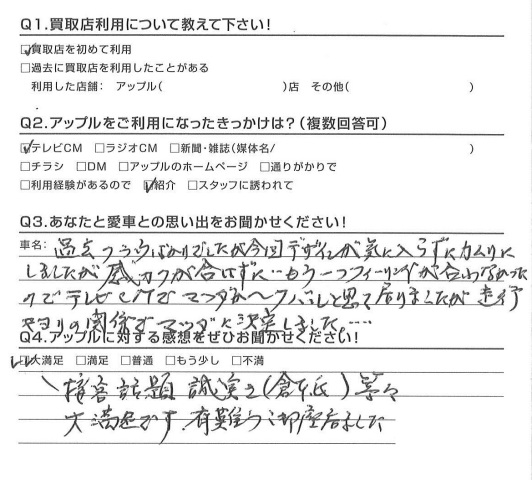 Q1.買取店利用について教えて下さい!
☑買取店を初めて利用
□過去に買取店を利用したことがある
利用した店舗: アップル( )店 その他( )
Q2.アップルをご利用になったきっかけは?(複数回答可)
☑テレビCM □ラジオCM □新聞・雑誌(媒体名/ )
□チラシ □DM □アップルのホームページ □通りがかりで
□利用経験があるので ☑紹介 □スタッフに誘われて
Q3.あなたと愛車との思い出をお聞かせください!
車名: 過去クラウンばかりでしたが今回デザインが気に入らずにカムリに
しましたが感カクが合はずに…もう一つフィーリングが合わなかった
のでテレビCMでマツダか〜スバルと思って居りましたが
の関係でマツダに決定しました。….
Q4.アップルに対する感想をぜひお聞かせください!
☑大満足 □満足 □普通 □もう少し □不満
接客 話題 誠実さ(倉本氏)等々
大満足です.有難うご御座居ました